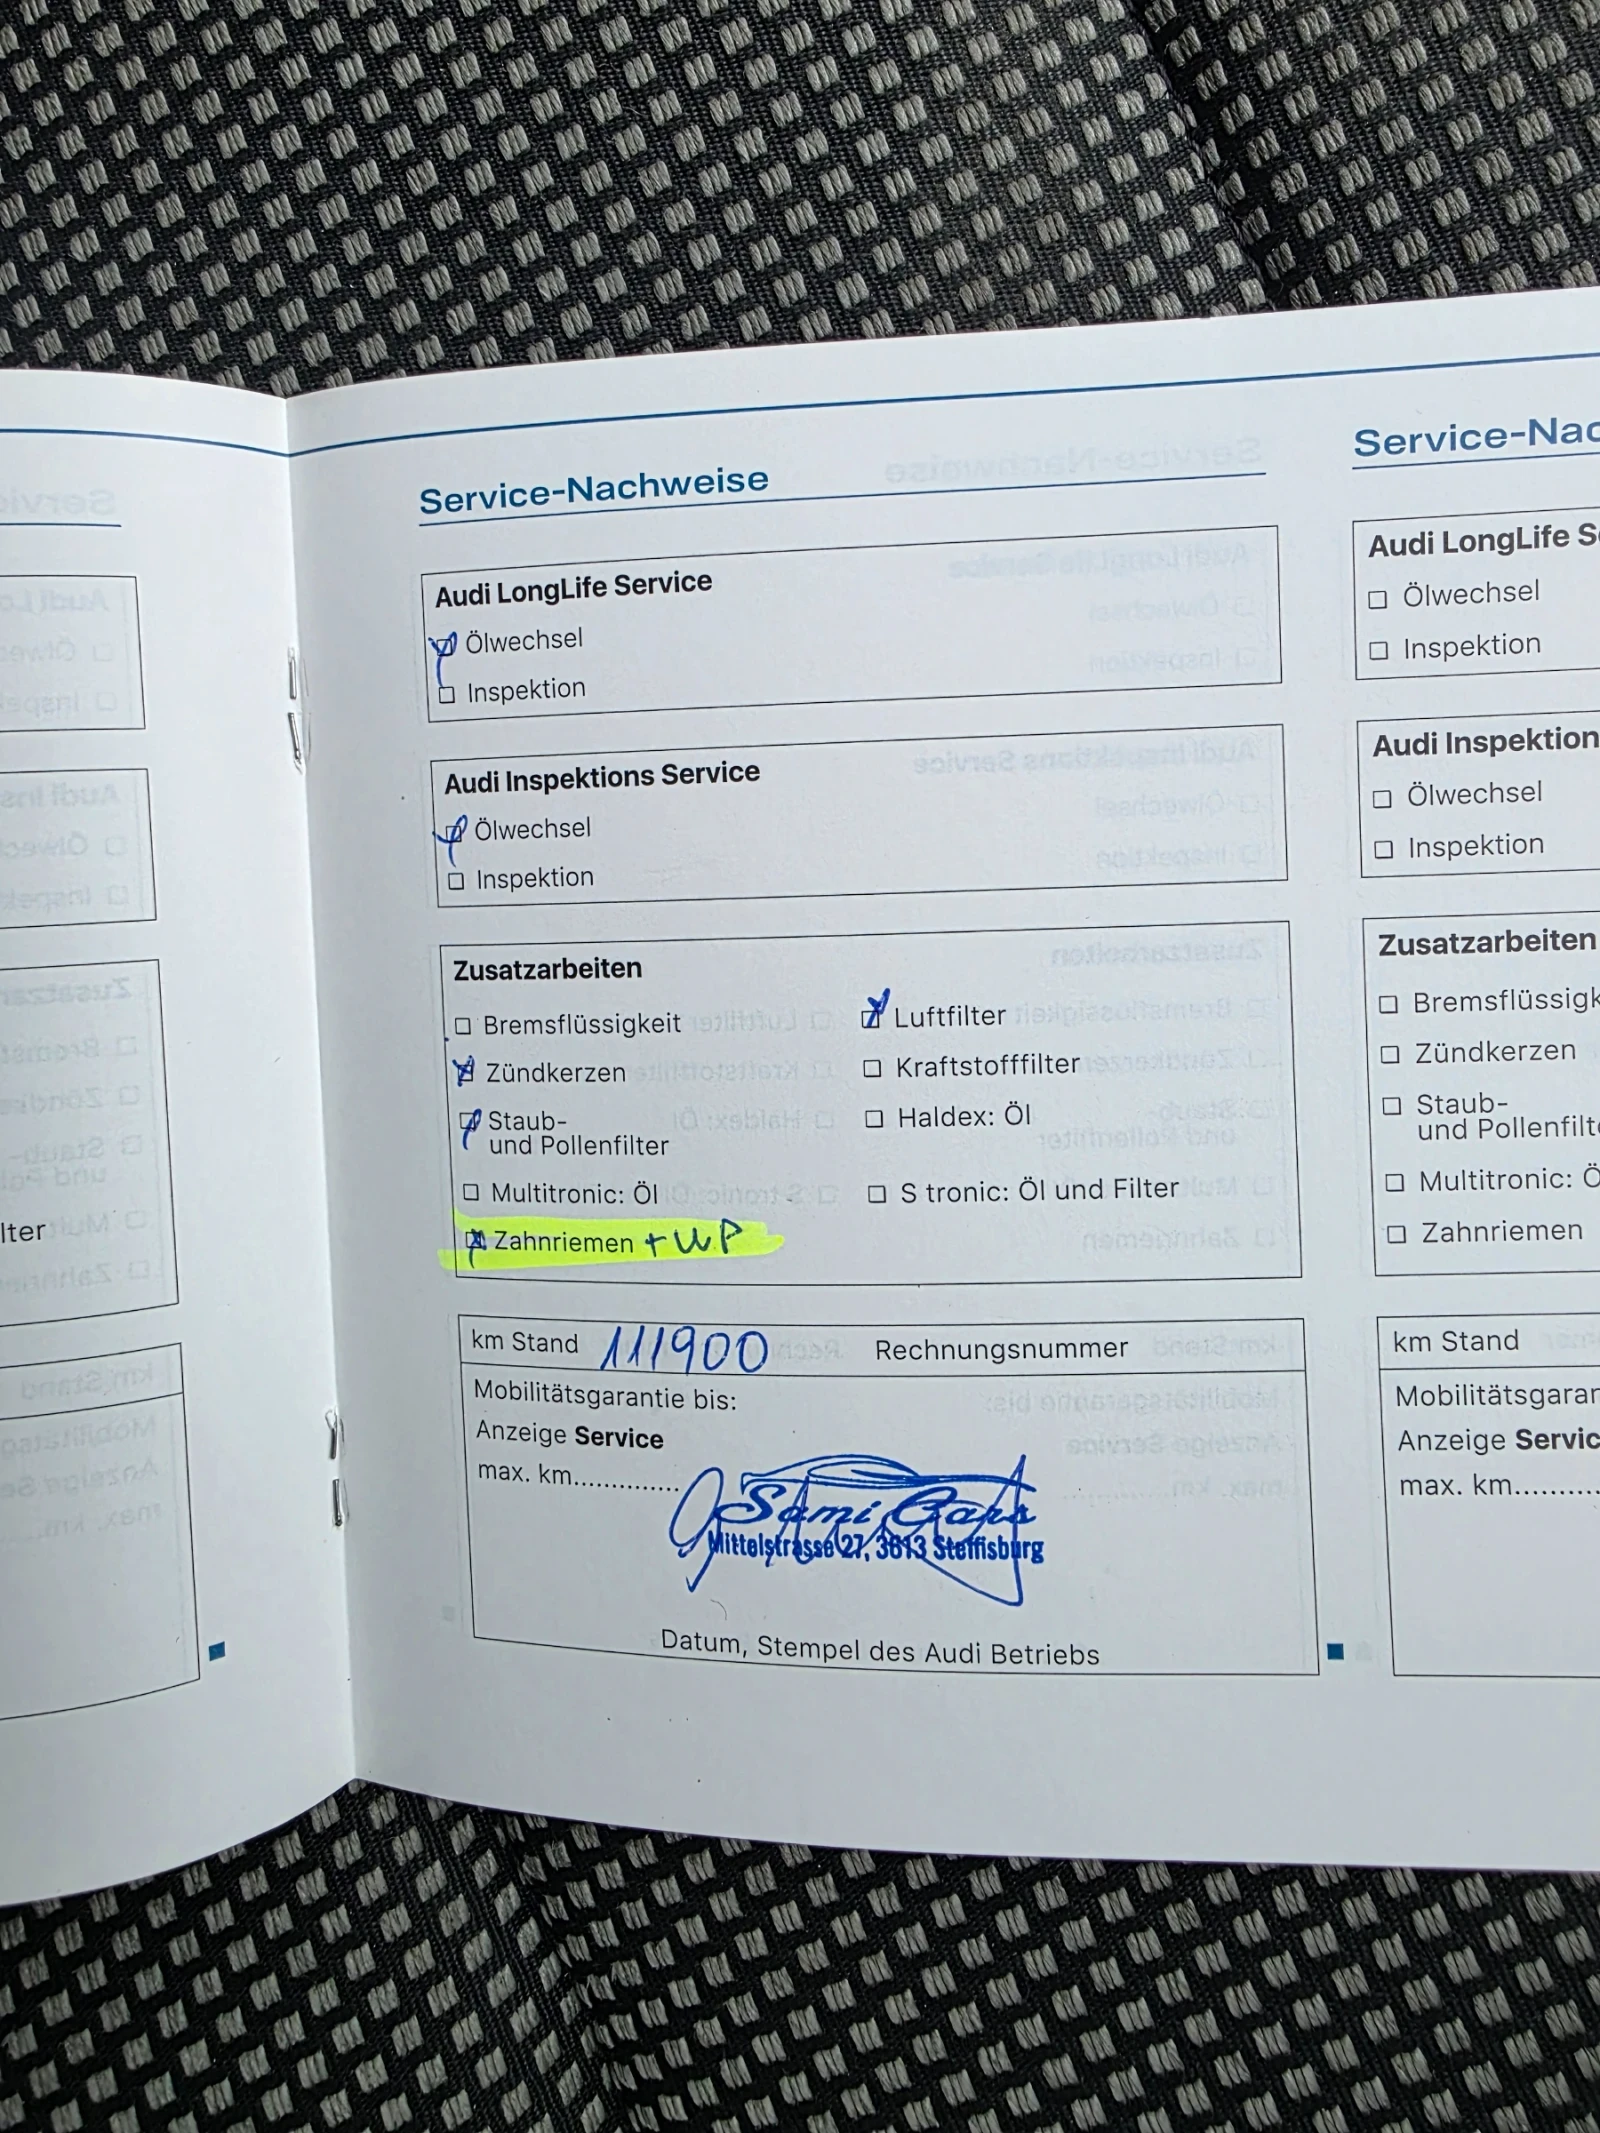 lter
Service-Nachweise
Audi LongLife Service
Ölwechsel
Inspektion
Audi Inspektions Service
Ölwechsel
Inspektion
Zusatzarbeiten
Bremsflüssigkeit
Zündkerzen
Staub-
und Pollenfilter
Multitronic: Öl
Zahnriemen + W.P
Luftfilter
Kraftstofffilter
Haldex: Öl
S tronic: Öl und Filter
km Stand 111900 Rechnungsnummer
Mobilitätsgarantie bis:
Anzeige Service
max. km...............
Sami Cars
Mittelstrasse 27, 3613 Steffisburg
Datum, Stempel des Audi Betriebs
Service-Nac
Audi LongLife S
Ölwechsel
Inspektion
Audi Inspektion
Ölwechsel
Inspektion
Zusatzarbeiten
Bremsflüssigk
Zündkerzen
Staub-
und Pollenfilt
Multitronic: Ö
Zahnriemen
km Stand
Mobilitätsgaran
Anzeige Servic
max. km..........